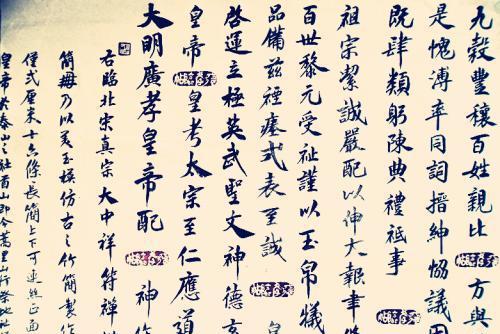 九穀豐穰百姓親比方輿
是愧溥率同詞搢紳恊議因
既肆類躬陳典禮祗事
祖宗絜誠嚴配以伸大報聿
百世黎元受祉謹以玉帛犧
品備茲禋瘞式表至誠皇
啓運立極英武聖文神德玄
皇帝皇考太宗至仁應道
大明廣孝皇帝配神作
右臨北宋真宗大中祥符禪
簡冊乃以美玉摸仿古之竹簡製作
僅弍厘米十六條長簡上下可連絲正面
皇帝於泰山之社首山即今蒿里山行祭地